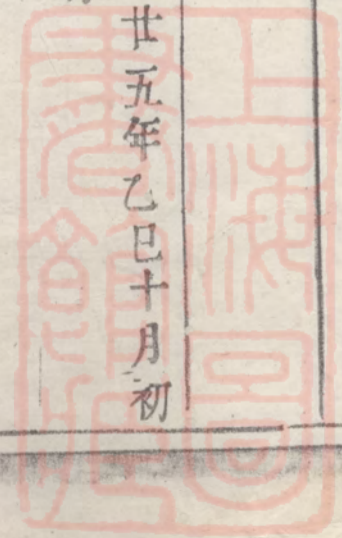 廿五年乙巳十月初
上海圖
書館藏